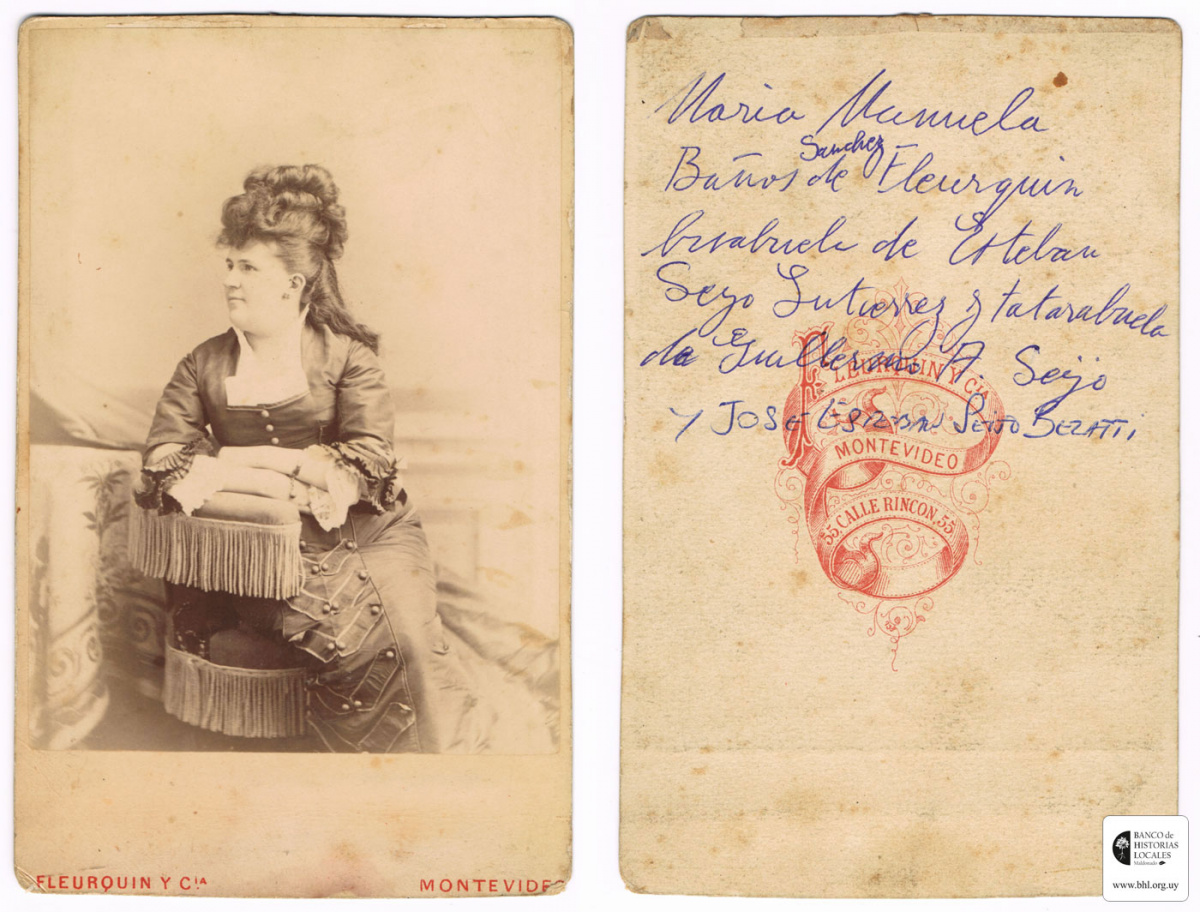 FLEURQUIN Y CIA
MONTEVIDEO
Maria Manuela
Sanchez
Baños de Fleurquin
bisabuela de Esteban
Seijo Gutierrez y tatarabuela
de Guillermo A. Seijo
Y JOSE ESTEBAN SEIJO BEZATTI
FLEURQUIN Y CIA
MONTEVIDEO
55, CALLE RINCON, 55
BANCO de
HISTORIAS
LOCALES
Maldonado
www.bhl.org.uy